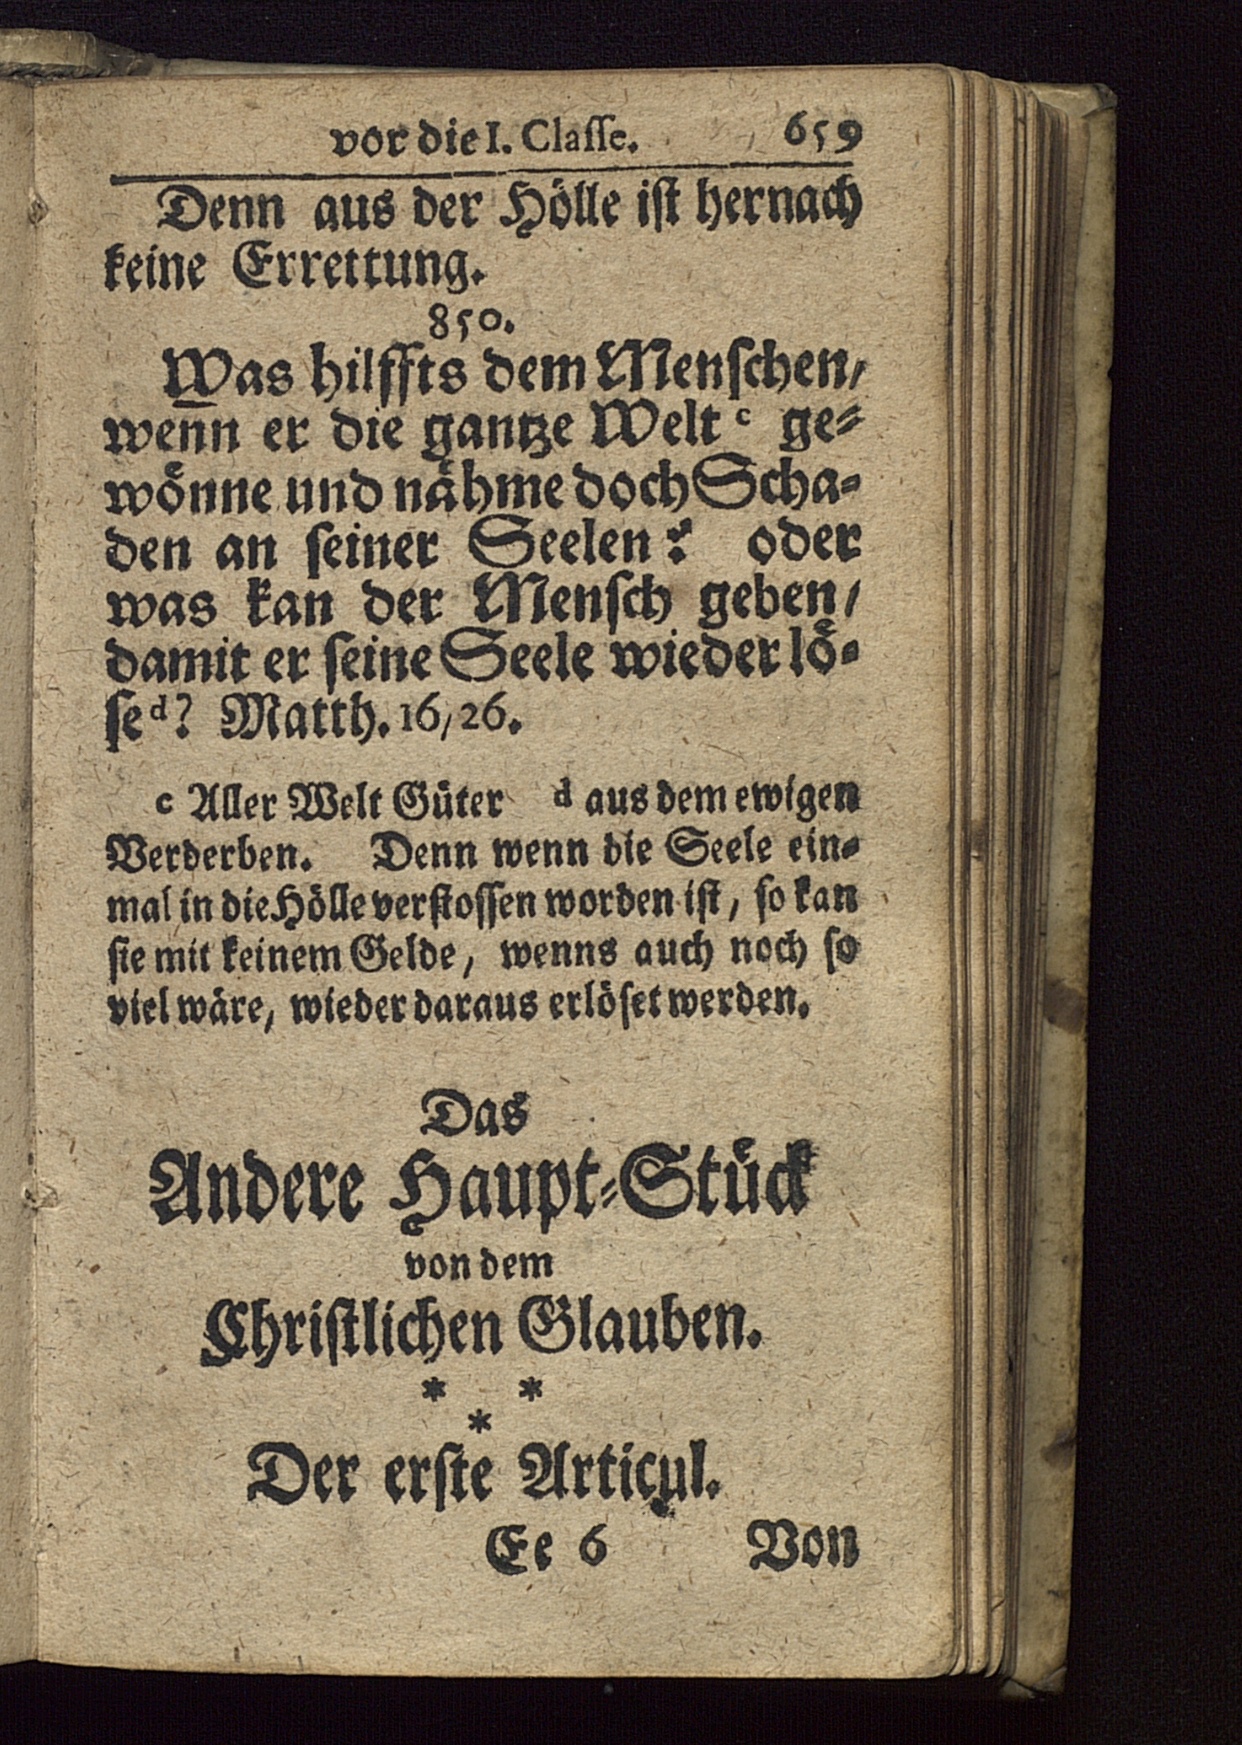 vor die I. Claſſe. 659
Denn aus der Hölle iſt hernach
keine Errettung.
850.
Was hilffts dem Menſchen/
wenn er die gantze Welt c ge-
wönne und nähme doch Scha-
den an ſeiner Seelen? oder
was kan der Menſch geben/
damit er ſeine Seele wieder lö-
ſe d? Matth. 16/26.
c Aller Welt Güter d aus dem ewigen
Verderben. Denn wenn die Seele ein-
mal in die Hölle verſtoſſen worden iſt, ſo kan
ſie mit keinem Gelde, wenns auch noch ſo
viel wäre, wieder daraus erlöſet werden.
Das
Andere Haupt-Stück
von dem
Chriſtlichen Glauben.
* *
*
Der erſte Articul.
Ee 6 Von